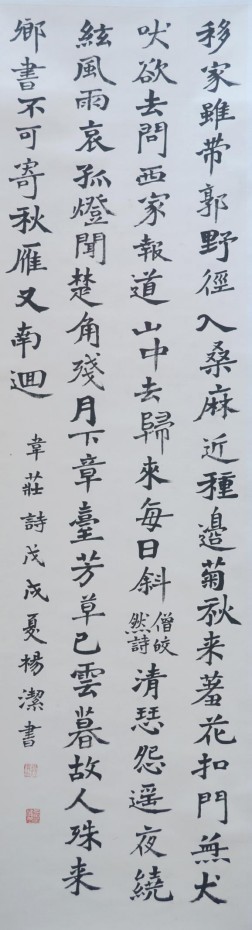 移家雖帶郭野徑入桑麻近種邉菊秋来著花扣門無犬
吠欲去問西家報道山中去歸來每日斜僧皎然詩清瑟怨遥夜繞
絃風雨哀孤燈聞楚角殘月下章臺芳草已雲暮故人殊来
鄉書不可寄秋雁又南迴
韋莊詩戊戌夏楊潔書